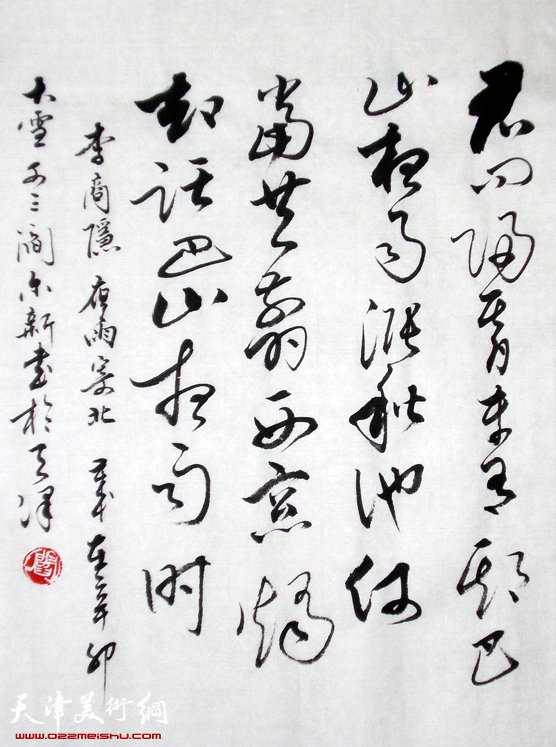 君问归期未有期巴
山夜雨涨秋池何
当共剪西窗烛
却话巴山夜雨时
李商隐 夜雨寄北 岁在辛卯
大雪 三 阎尔新书於天津
天津美術網
www.022meishu.com